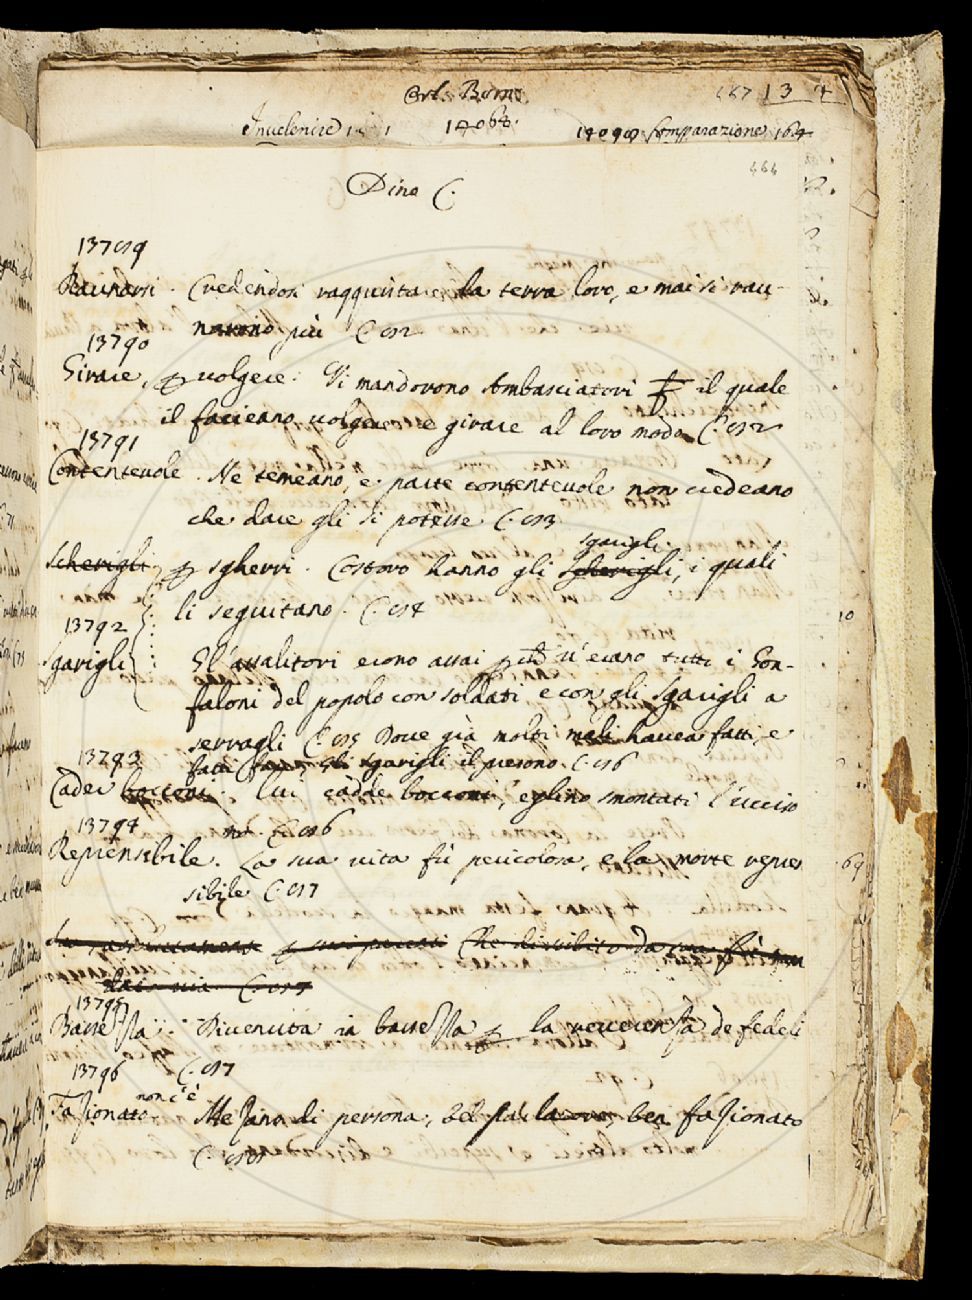 Invelenire
Comparazione 164
Dino C.
13789
Raunarsi. Credendosi raqquistare la terra loro, e mai si rau-
narono più C. 82
13790
Girare, p volgere. Vi mandorono Ambasciatori il quale
il facieano volgere e girare al loro modo C. 82
13791
Contentevole. Ne temeano, e parte contentevole non credeano
che dare gli si potesse C. 83
sgarigli
Scherigli p sgherri. Costoro hanno gli scherigli, i quali
li seguitano. C. 84
13792
Sgarigli Gl'assalitori erono assai v'erano tutti i Gon-
faloni del popolo con soldati e con gli Sgarigli a
serragli C. 85 Dove già molti mali havea fatti, e
fatti sgarigli il presono. C. 86
13793
Cader bocconi. Lui cadde bocconi, eglino smontati l'ucciso
no. C. 86
13794
Reprensibile. La sua vita fù pericolosa, e la morte repren
sibile C. 87
13795
Bassezza. Divenuta in bassezza la reverenza de fedeli
C. 87
13796
non c'è
Fazionato Mezano di persona, ben fazionato